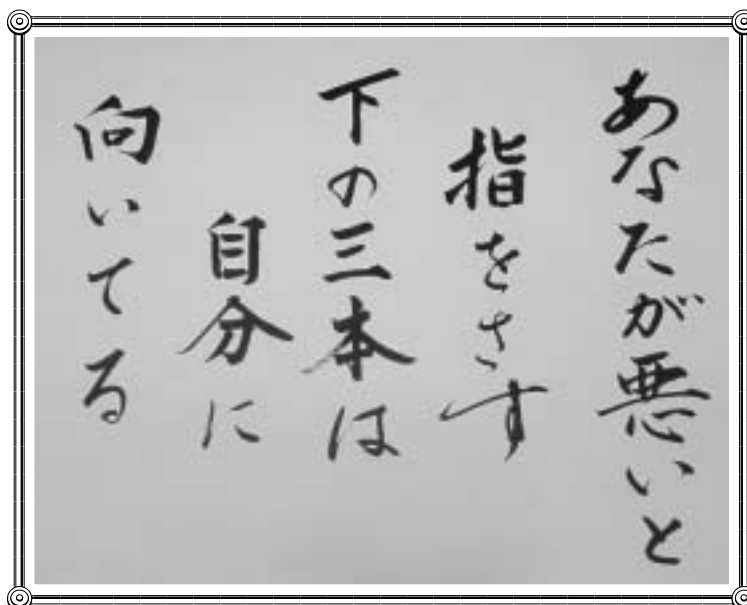 あなたが悪いと
指をさす
下の三本は
自分に
向いてる